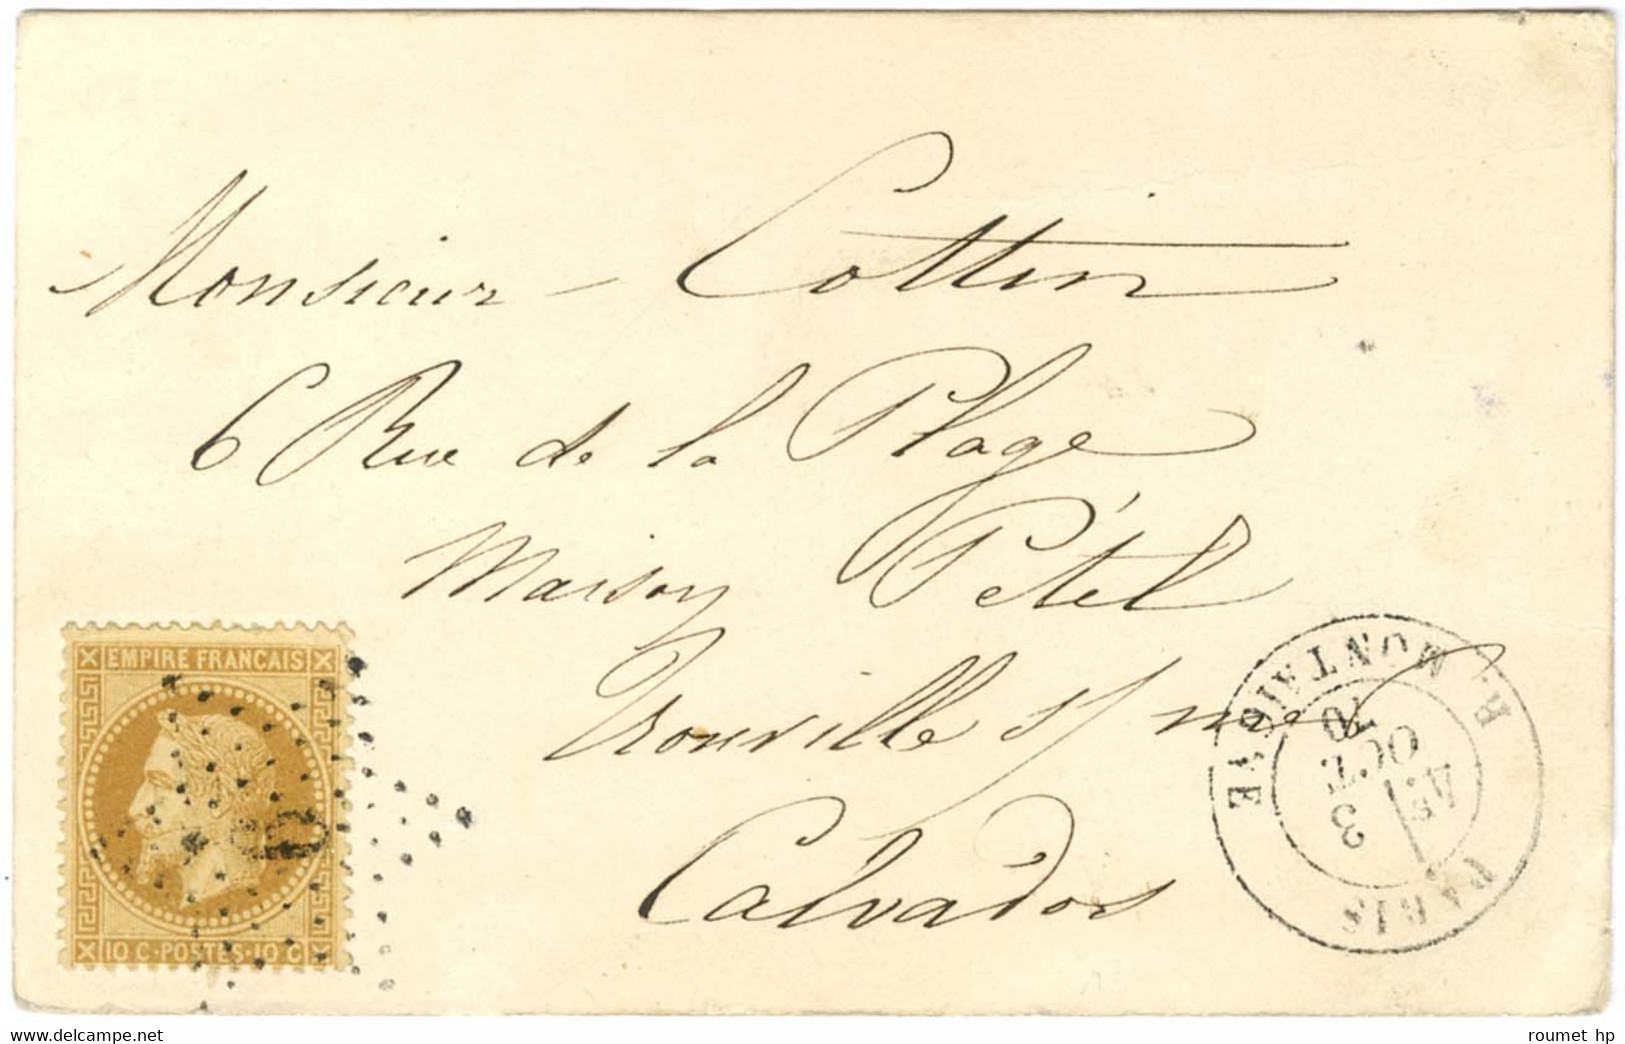 Monsieur – Cottin
6 Rue de la Plage
Maison Pétel
Trouville s/ mer
Calvados
EMPIRE FRANCAIS
10 C · POSTES · 10 C
PARIS
R. MONTAIGNE
Ars
3
OCT.
70
roumet hp